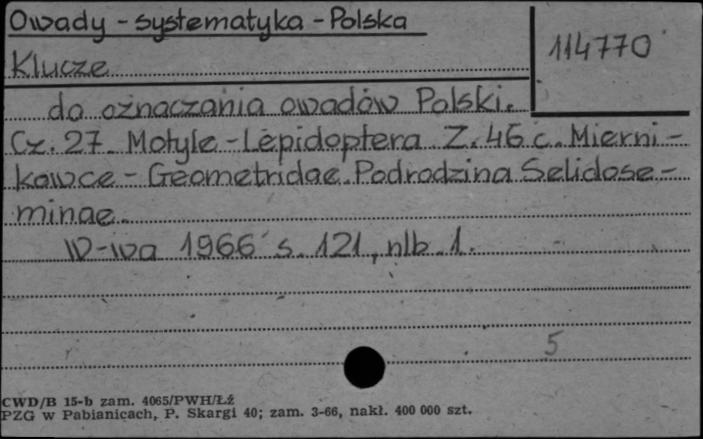 Owady - systematyka - Polska
114770
Klucze
do oznaczania owadów Polski.
Cz. 27. Motyle - Lepidoptera. Z. 46 c. Mierni-
kowce - Geometridae. Podrodzina Selidose-
minae.
W-wa 1966 s. 121, nlb. 1.
5
CWD/B 15-b zam. 4065/PWH/Łź
PZG w Pabianicach, P. Skargi 40; zam. 3-66, nakł. 400 000 szt.